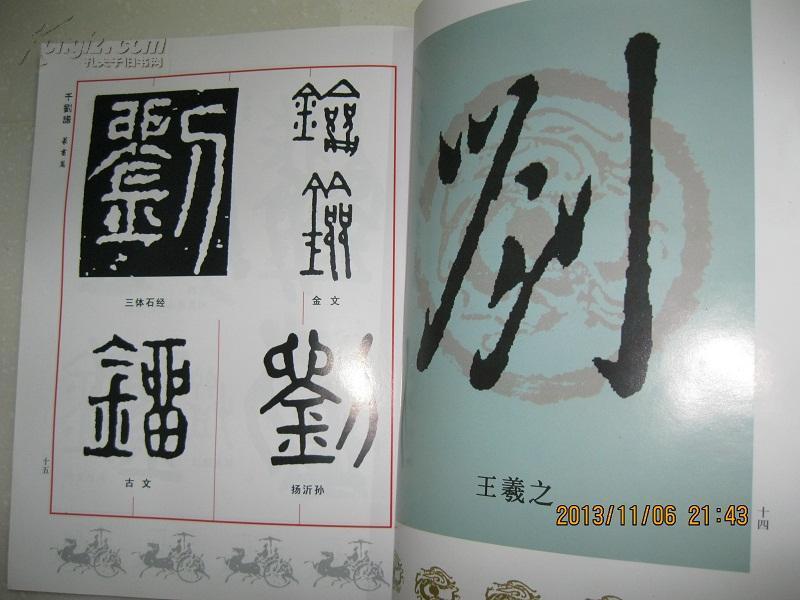 Kongfz.com
孔夫子旧书网
千劉譜 篆書篇
劉
三体石经
金文
鎦
古文
劉
扬沂孙
十五
劉
王羲之
十四
2013/11/06 21:43